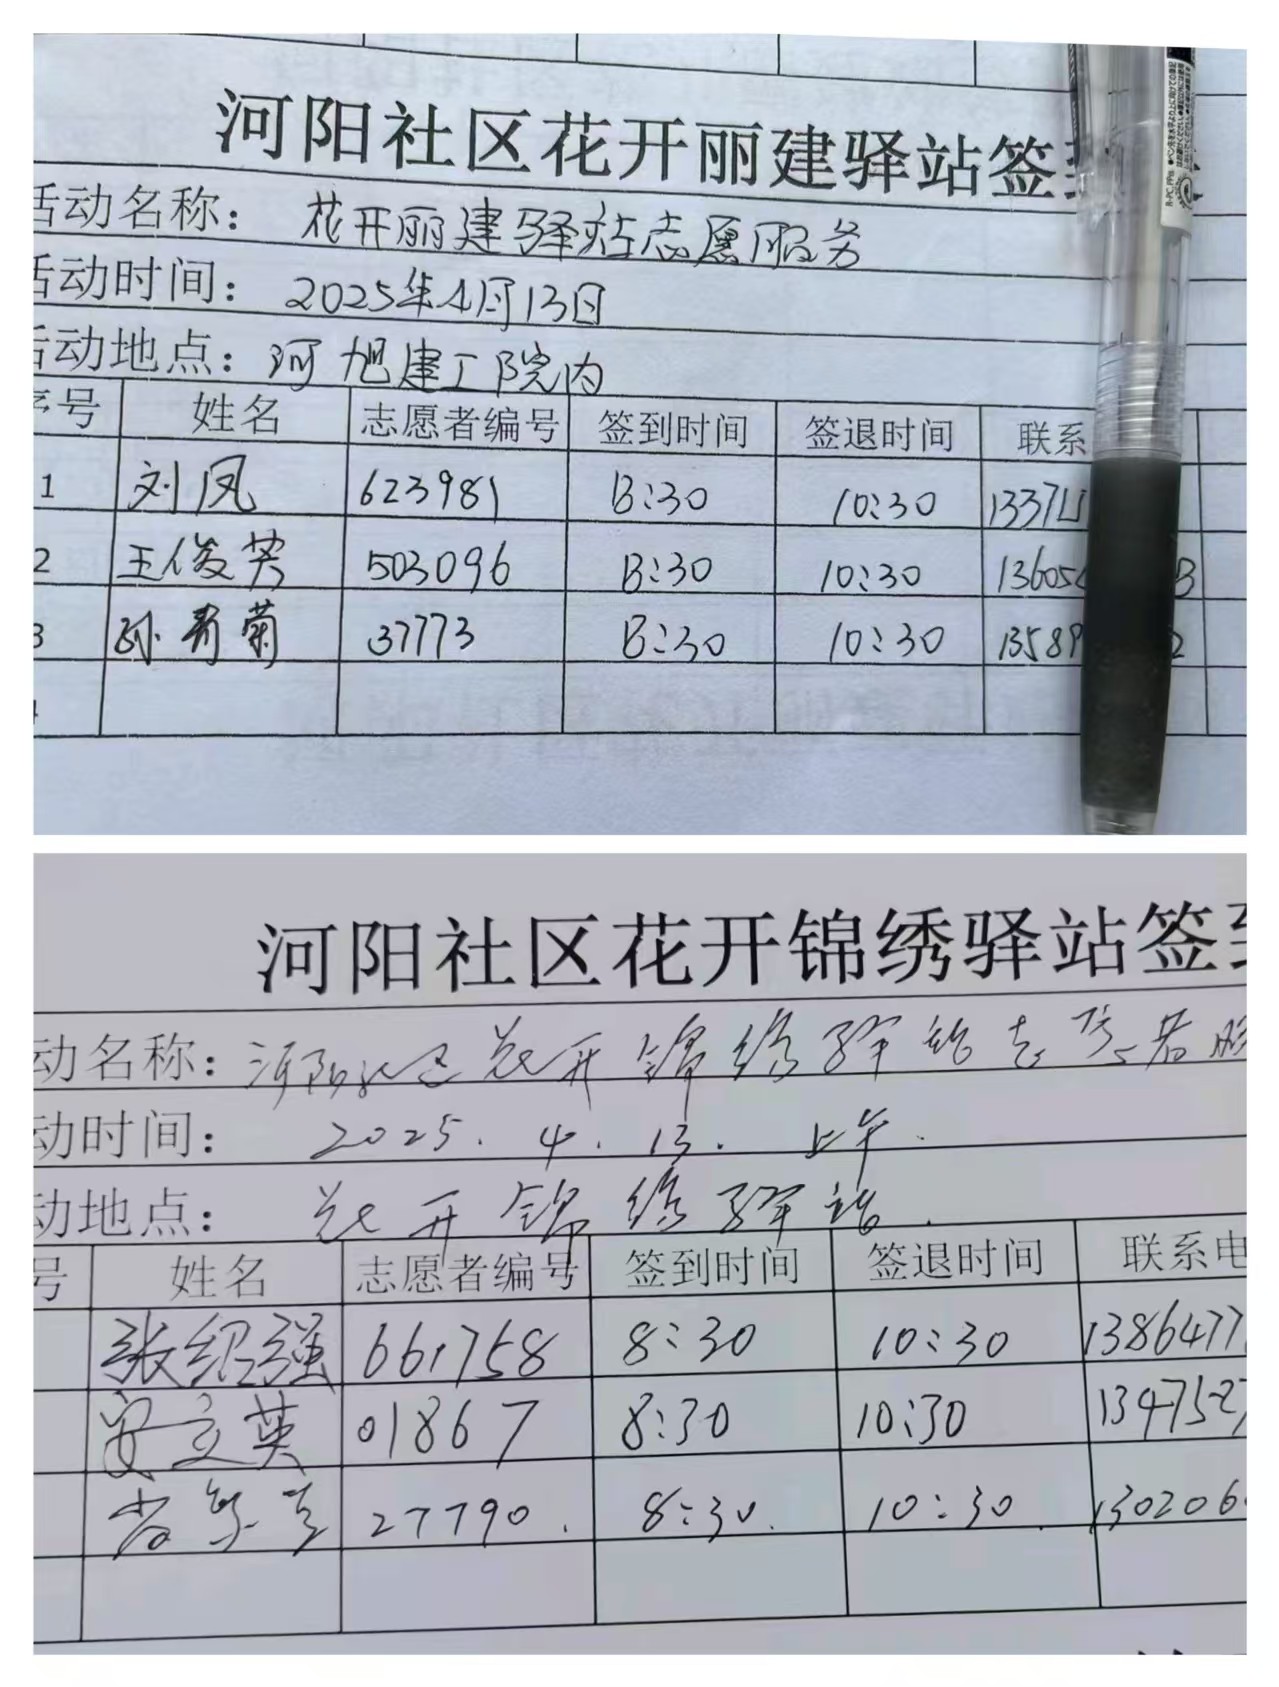 河阳社区花开丽建驿站签
活动名称： 花开丽建驿站志愿服务
活动时间： 2025年4月13日
活动地点： 河旭建工院内
序号 姓名 志愿者编号 签到时间 签退时间 联系
1 刘凤 623981 8:30 10:30 1337
2 王俊英 503096 8:30 10:30 13605
3 孙青菊 37773 8:30 10:30 13589
河阳社区花开锦绣驿站签到
动名称： 河阳社区花开锦绣驿站志愿者服
动时间： 2025.4.13. 上午.
动地点： 花开锦绣驿站.
号 姓名 志愿者编号 签到时间 签退时间 联系电
张绍强 661758 8:30 10:30 1386477
安立英 01867 8:30 10:30 1347527
27790. 8:30. 10:30. 130206